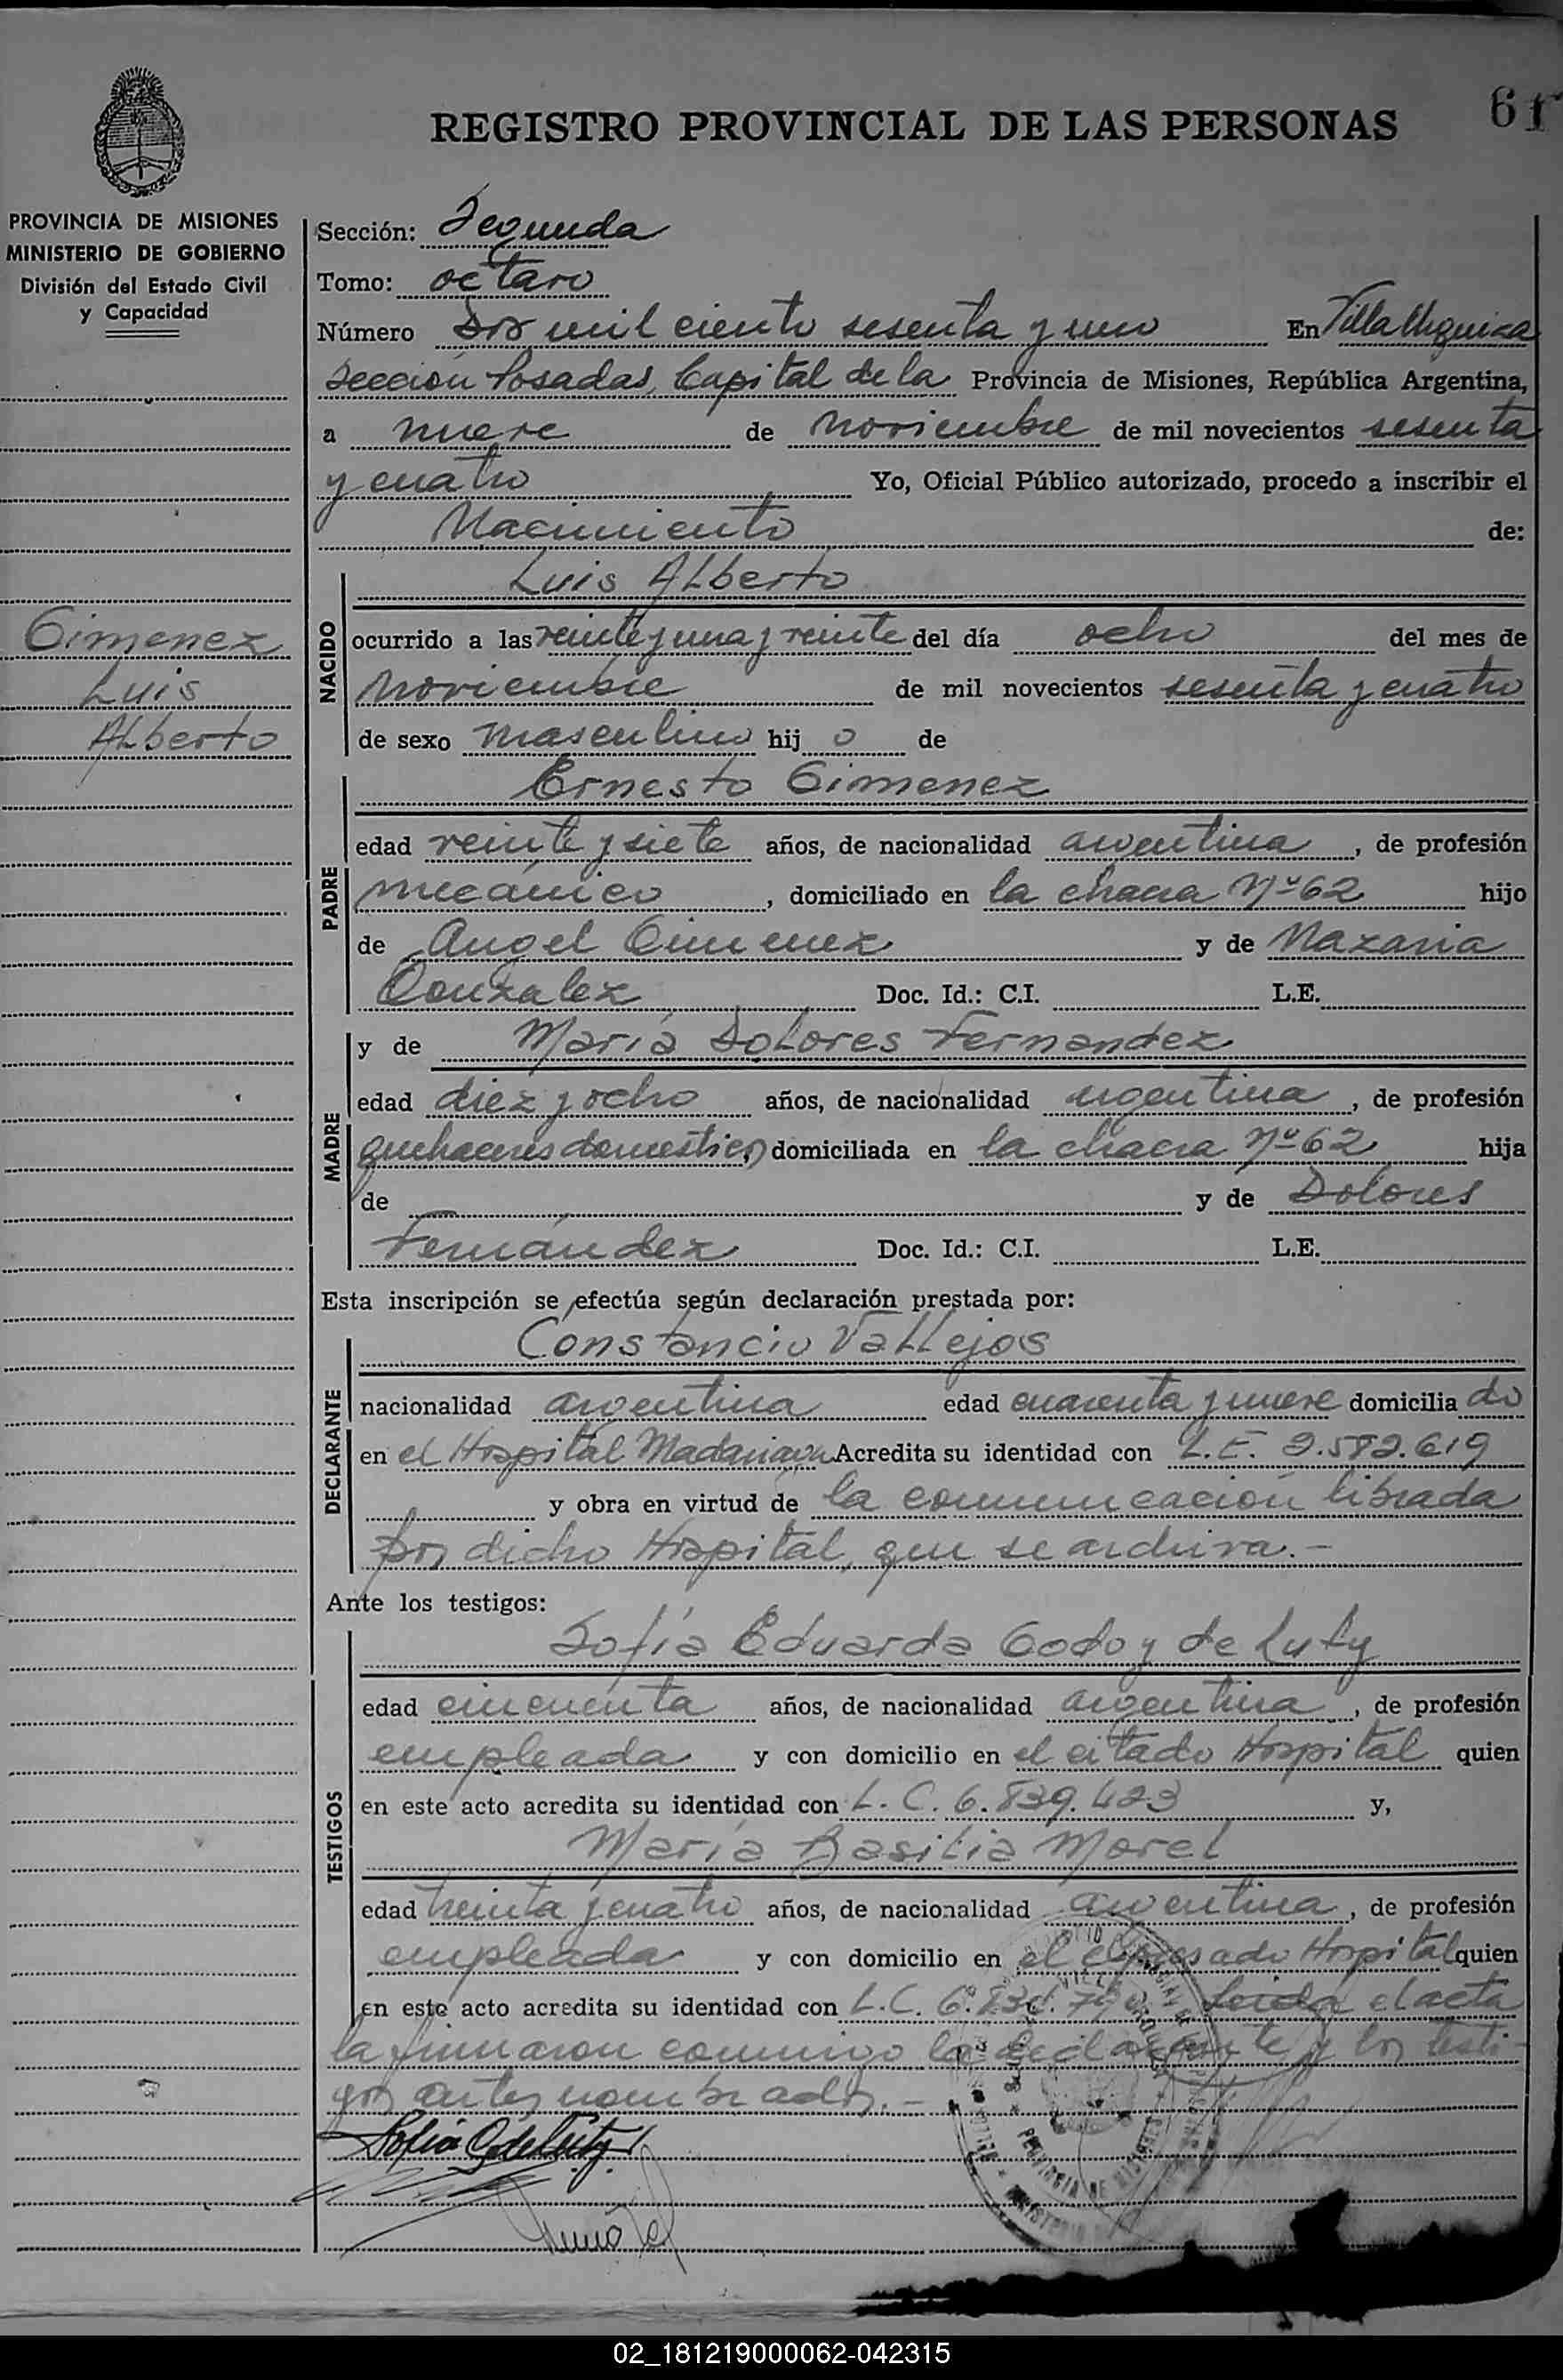 REGISTRO PROVINCIAL DE LAS PERSONAS
61
PROVINCIA DE MISIONES
MINISTERIO DE GOBIERNO
División del Estado Civil
y Capacidad
Gimenez
Luis
Alberto
Sección: Segunda
Tomo: octavo
Número Dos mil ciento sesenta y uno En Villa Urquiza
Sección Posadas, Capital de la Provincia de Misiones, República Argentina,
a nueve de Noviembre de mil novecientos sesenta
y cuatro Yo, Oficial Público autorizado, procedo a inscribir el
Nacimiento de:
NACIDO
Luis Alberto
ocurrido a las veinte y una y veinte del día ocho del mes de
Noviembre de mil novecientos sesenta y cuatro
de sexo masculino hij o de
PADRE
Ernesto Gimenez
edad veinte y siete años, de nacionalidad argentina, de profesión
mecánico, domiciliado en la chacra Nº 62 hijo
de Angel Gimenez y de Nazaria
Gonzalez Doc. Id.: C.I. L.E.
MADRE
y de María Dolores Fernandez
edad diez y ocho años, de nacionalidad argentina, de profesión
quehaceres domesticos domiciliada en la chacra Nº 62 hija
de y de Dolores
Fernández Doc. Id.: C.I. L.E.
Esta inscripción se efectúa según declaración prestada por:
DECLARANTE
Constancio Vallejos
nacionalidad argentina edad cuarenta y nueve domicilia do
en el Hospital Madariaga Acredita su identidad con L.E. 9.582.619
y obra en virtud de la comunicación librada
por dicho Hospital, que se archiva.-
Ante los testigos:
TESTIGOS
Sofía Eduarda Godoy de Luty
edad cincuenta años, de nacionalidad argentina, de profesión
empleada y con domicilio en el citado Hospital quien
en este acto acredita su identidad con L.C. 6.839.423 y,
María Basilia Morel
edad treinta y cuatro años, de nacionalidad argentina, de profesión
empleada y con domicilio en el expresado Hospital quien
en este acto acredita su identidad con L.C. Leída el acta
la firmaron conmigo declarante y los testi-
gos antes nombrados.-
Sofia G de Luty
PROVINCIA DE MISIONES
02_181219000062-042315